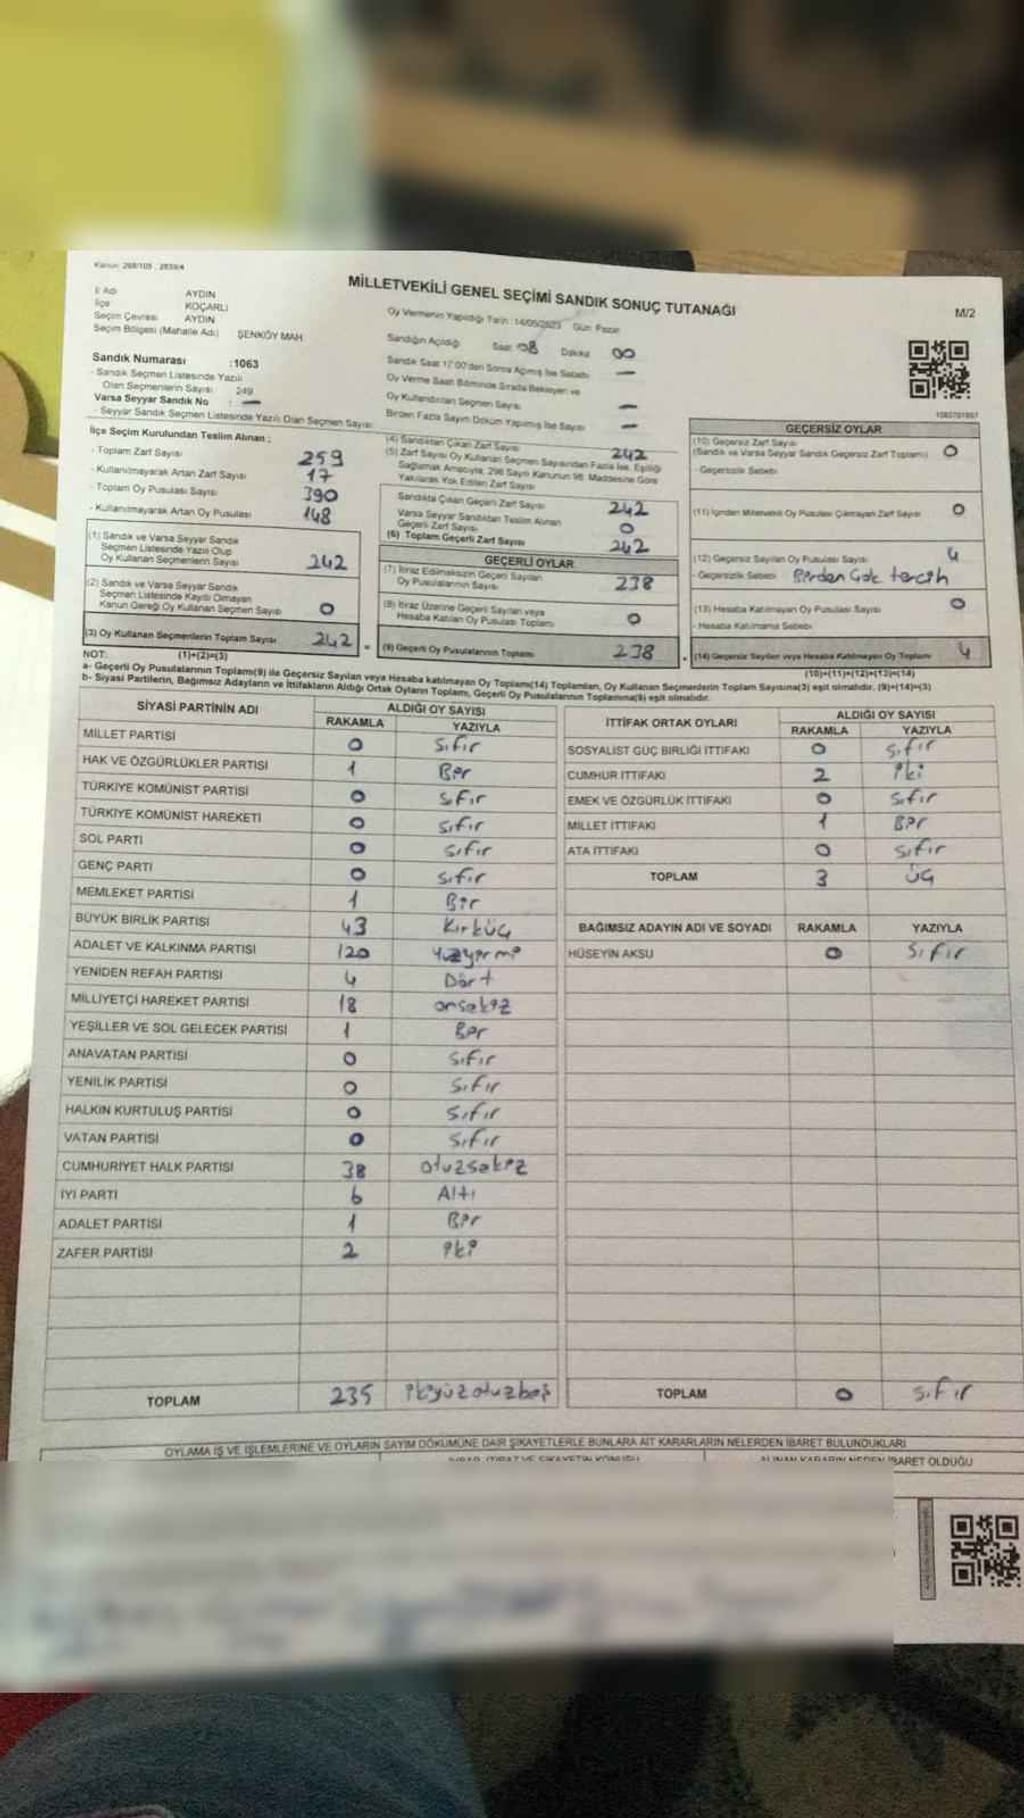 Kanun: 298/105 , 2839/4
MİLLETVEKİLİ GENEL SEÇİMİ SANDIK SONUÇ TUTANAĞI
M/2
İl Adı AYDIN
İlçe KOÇARLI
Seçim Çevresi AYDIN
Seçim Bölgesi (Mahalle Adı) ŞENKÖY MAH.
Sandık Numarası :1063
- Sandık Seçmen Listesinde Yazılı
Olan Seçmenlerin Sayısı 249
Varsa Seyyar Sandık No : —
- Seyyar Sandık Seçmen Listesinde Yazılı Olan Seçmen Sayısı
Oy Vermenin Yapıldığı Tarih : 14/05/2023 Gün: Pazar
Sandığın Açıldığı Saat 08 Dakika 00
Sandık Saat 17:00'den Sonra Açılmış İse Sebebi —
Oy Verme Saati Bitiminde Sırada Bekleyen ve
Oy Kullandırılan Seçmen Sayısı —
Birden Fazla Sayım Döküm Yapılmış İse Sayısı —
İlçe Seçim Kurulundan Teslim Alınan :
- Toplam Zarf Sayısı 259
- Kullanılmayarak Artan Zarf Sayısı 17
- Toplam Oy Pusulası Sayısı 390
- Kullanılmayarak Artan Oy Pusulası 148
(1) Sandık ve Varsa Seyyar Sandık
Seçmen Listesinde Yazılı Olup
Oy Kullanan Seçmenlerin Sayısı 242
(2) Sandık ve Varsa Seyyar Sandık
Seçmen Listesinde Kayıtlı Olmayan
Kanun Gereği Oy Kullanan Seçmen Sayısı 0
(3) Oy Kullanan Seçmenlerin Toplam Sayısı 242
(1)+(2)=(3)
(4) Sandıktan Çıkan Zarf Sayısı 242
(5) Zarf Sayısı Oy Kullanan Seçmen Sayısından Fazla İse, Eşitliği
Sağlamak Amacıyla, 298 Sayılı Kanunun 98. Maddesine Göre
Yakılarak Yok Edilen Zarf Sayısı
Sandıkta Çıkan Geçerli Zarf Sayısı 242
Varsa Seyyar Sandıktan Teslim Alınan
Geçerli Zarf Sayısı 0
(6) Toplam Geçerli Zarf Sayısı 242
GEÇERLİ OYLAR
(7) İtiraz Edilmeksizin Geçerli Sayılan
Oy Pusulalarının Sayısı 238
(8) İtiraz Üzerine Geçerli Sayılan veya
Hesaba Katılan Oy Pusulası Toplamı 0
(9) Geçerli Oy Pusulalarının Toplamı 238
GEÇERSİZ OYLAR
(10) Geçersiz Zarf Sayısı
(Sandık ve Varsa Seyyar Sandık Geçersiz Zarf Toplamı) 0
- Geçersizlik Sebebi
(11) İçinden Milletvekili Oy Pusulası Çıkmayan Zarf Sayısı 0
(12) Geçersiz Sayılan Oy Pusulası Sayısı 4
- Geçersizlik Sebebi Birden Çok tercih
(13) Hesaba Katılmayan Oy Pusulası Sayısı 0
- Hesaba Katılmama Sebebi
(14) Geçersiz Sayılan veya Hesaba Katılmayan Oy Toplamı 4
(10)+(11)+(12)+(13)=(14)
NOT:
a- Geçerli Oy Pusulalarının Toplamı(9) ile Geçersiz Sayılan veya Hesaba katılmayan Oy Toplamı(14) Toplamları, Oy Kullanan Seçmenlerin Toplam Sayısına(3) eşit olmalıdır. (9)+(14)=(3)
b- Siyasi Partilerin, Bağımsız Adayların ve İttifakların Aldığı Ortak Oyların Toplamı, Geçerli Oy Pusulalarının Toplamına(9) eşit olmalıdır.
SİYASİ PARTİNİN ADI ALDIĞI OY SAYISI
RAKAMLA YAZIYLA
MİLLET PARTİSİ 0 Sıfır
HAK VE ÖZGÜRLÜKLER PARTİSİ 1 Bir
TÜRKİYE KOMÜNİST PARTİSİ 0 Sıfır
TÜRKİYE KOMÜNİST HAREKETİ 0 Sıfır
SOL PARTİ 0 Sıfır
GENÇ PARTİ 0 Sıfır
MEMLEKET PARTİSİ 1 Bir
BÜYÜK BİRLİK PARTİSİ 43 Kırküç
ADALET VE KALKINMA PARTİSİ 120 Yüzyirmi
YENİDEN REFAH PARTİSİ 4 Dört
MİLLİYETÇİ HAREKET PARTİSİ 18 onsekiz
YEŞİLLER VE SOL GELECEK PARTİSİ 1 Bir
ANAVATAN PARTİSİ 0 Sıfır
YENİLİK PARTİSİ 0 Sıfır
HALKIN KURTULUŞ PARTİSİ 0 Sıfır
VATAN PARTİSİ 0 Sıfır
CUMHURİYET HALK PARTİSİ 38 otuzsekiz
İYİ PARTİ 6 Altı
ADALET PARTİSİ 1 Bir
ZAFER PARTİSİ 2 iki
TOPLAM 235 ikiyüzotuzbeş
İTTİFAK ORTAK OYLARI ALDIĞI OY SAYISI
RAKAMLA YAZIYLA
SOSYALİST GÜÇ BİRLİĞİ İTTİFAKI 0 Sıfır
CUMHUR İTTİFAKI 2 iki
EMEK VE ÖZGÜRLÜK İTTİFAKI 0 Sıfır
MİLLET İTTİFAKI 1 Bir
ATA İTTİFAKI 0 Sıfır
TOPLAM 3 üç
BAĞIMSIZ ADAYIN ADI VE SOYADI RAKAMLA YAZIYLA
HÜSEYİN AKSU 0 Sıfır
TOPLAM 0 Sıfır
OYLAMA İŞ VE İŞLEMLERİNE VE OYLARIN SAYIM DÖKÜMÜNE DAİR ŞİKAYETLERLE BUNLARA AİT KARARLARIN NELERDEN İBARET BULUNDUKLARI
İTİRAZ VE ŞİKAYETİN KONUSU ALINAN KARARIN NEDEN İBARET OLDUĞU